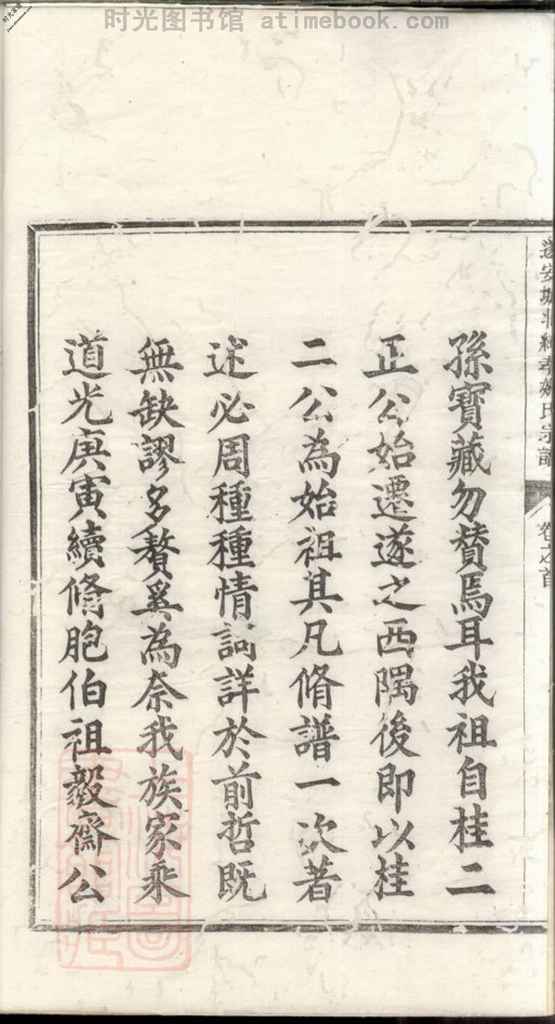 时光图书馆 atimebook.com
孫寶藏勿替焉耳我祖自桂二
正公始遷遂之西隅後即以桂
二公為始祖其凡脩譜一次著
述必周種種情詞詳於前哲既
無缺謬多贅奚為奈我族家乘
道光庚寅續脩胞伯祖毅齋公